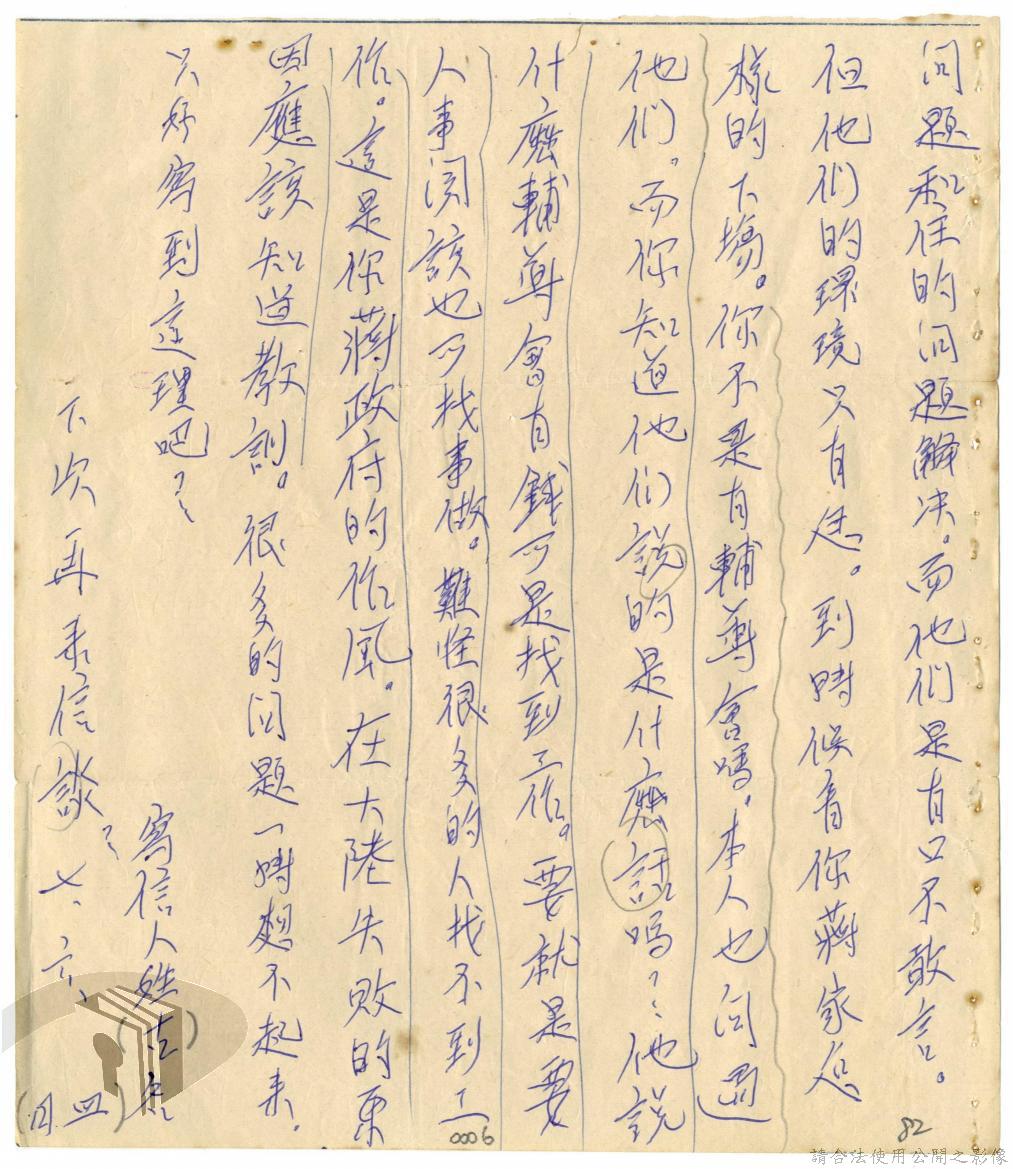 問題和住的問題解决。而他們是有口不敢言。
但他們的環境只有走。到時候看你蔣家怎
樣的下場。你不是有輔導會嗎。本人也问過
他們。而你知道他们説的是什麽話嗎?:他説
什麽輔導會有錢可是找到工作。要就是要
人事関該也可找事做。難怪很多的人找不到工
作。這是你蔣政府的作風。在大陸失敗的原
因應該知道教訓。很多的问題一時想不起來.
只好寫到這理吧?
寫信人姓
下次再來信談?七、六、
(四)
0006
82
請合法使用公開之影像